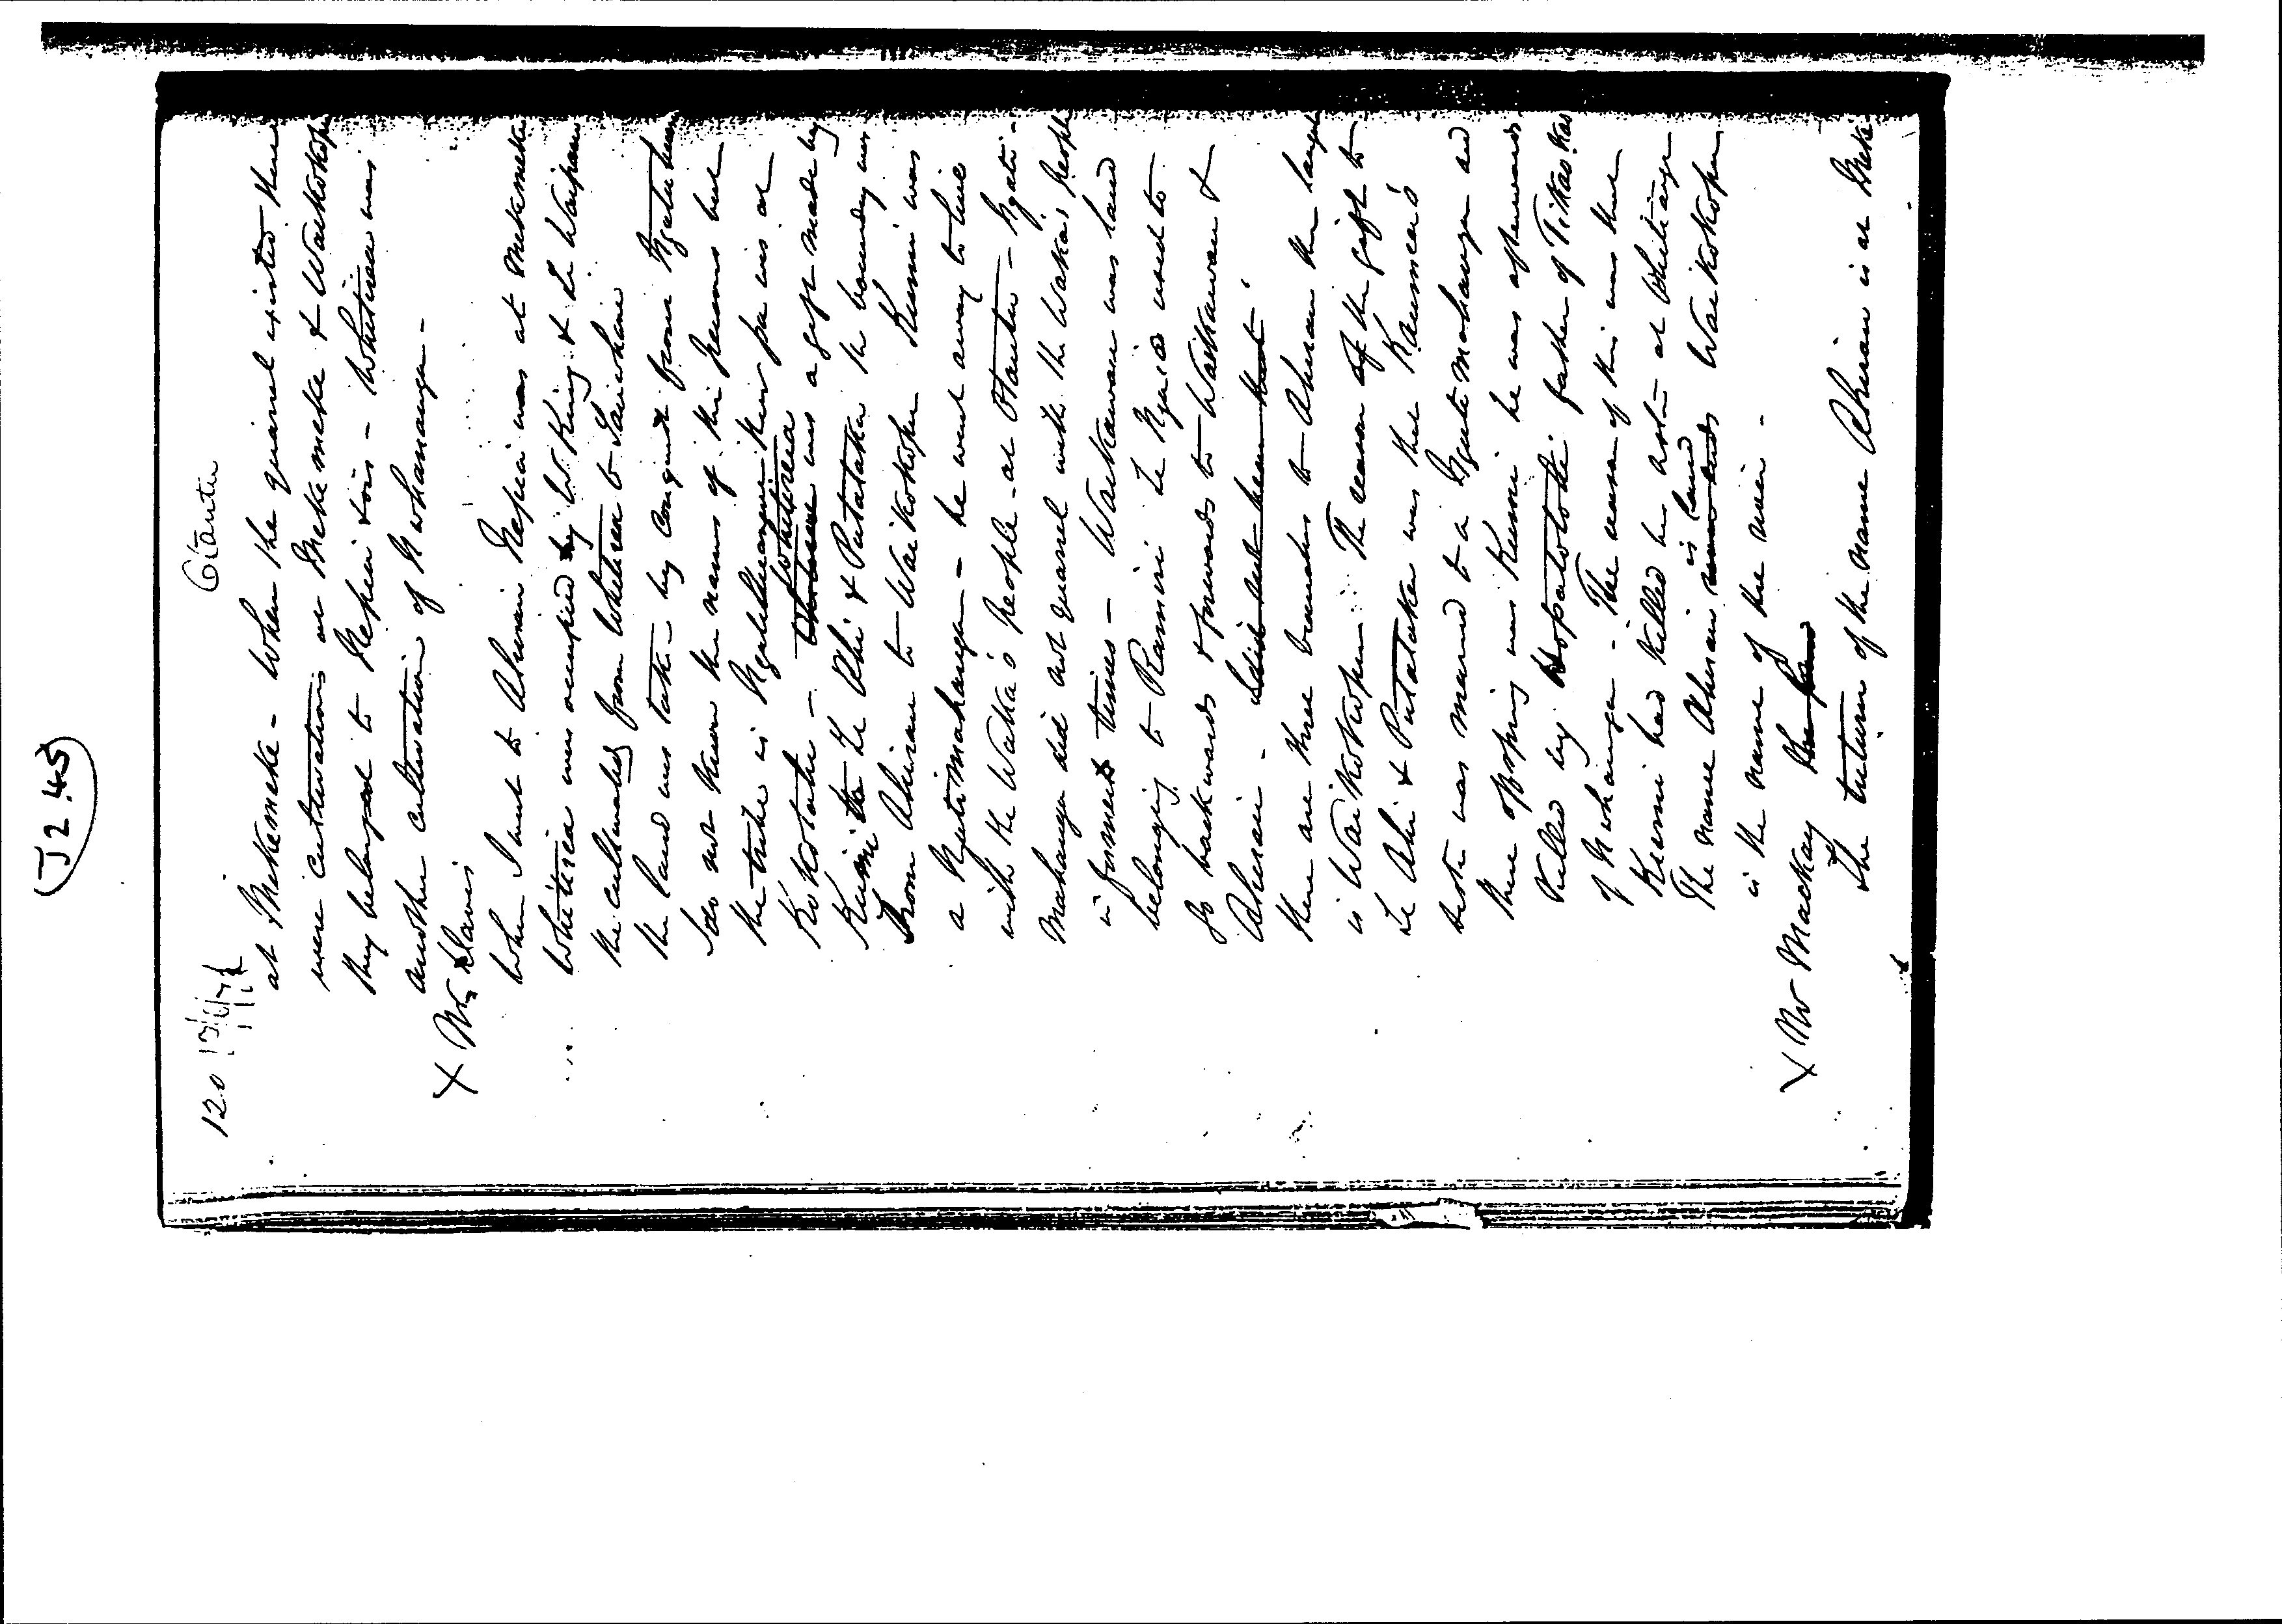 (J2.45)
120 13/6/71 Otautu
at Mekemeke - When the quarrel existed there
were cultivations on Mekemeke & Waikokopu
they belonged to Hepia & - Whitirea was
another cultivation of Nwhananga -
X Mr Davis
When I went to Ahurai Hepia was at Mekemeke
Whitirea was occupied by W. King & Te Waipau
the cultivated from Whitirea to
the land was taken by conquest from
I do not know the names of the persons but
the tribe is their pa was at
Kokotahi - Whitirea was a gift made by
Kumi to Te Ahi & Putataka the boundary was
from Ahurai to Waikokopu Kumi was
a Ngatimahanga - he went away to live
with the Waka's people at Otautu - Ngati-
mahanga did not quarrel with the Waka's people
in former times - Waikawau was land
belonging to Ramiri Te Ngaio used to
go backwards & forwards to Waikawau &
Ahurai -
there are three branches to Ahurai the largest
is Waikokopu. The reason of the gift to
Te Ahi & Putataka was that Kaumea's
sister was married to a Ngatimahanga and
there offspring was Kumi he was afterwards
killed by Hopatotoki father of Tikaokao
of Nwhanga - The reason of this was that
Kumi had killed his sister at Whitianga
The name Ahurai is land Waikokopu
is the name of the river -
X Mr Mackay
The tuturu of the name Ahurai is at Meke